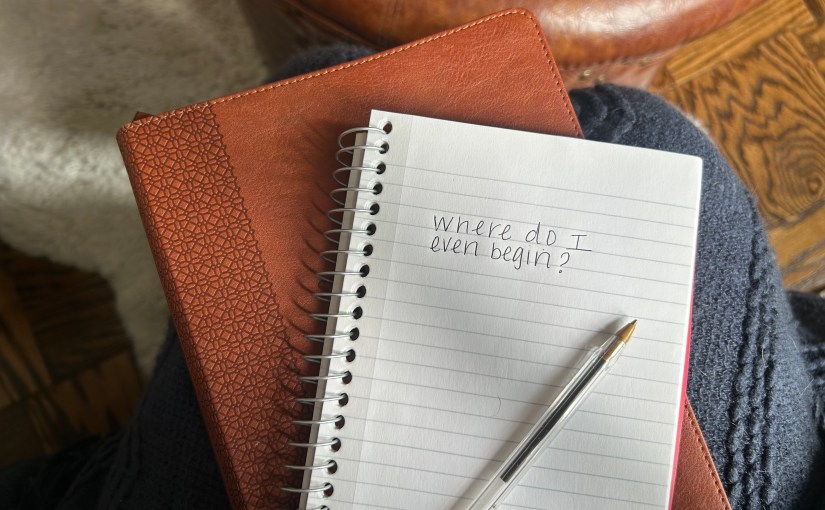 where do I
even begin?